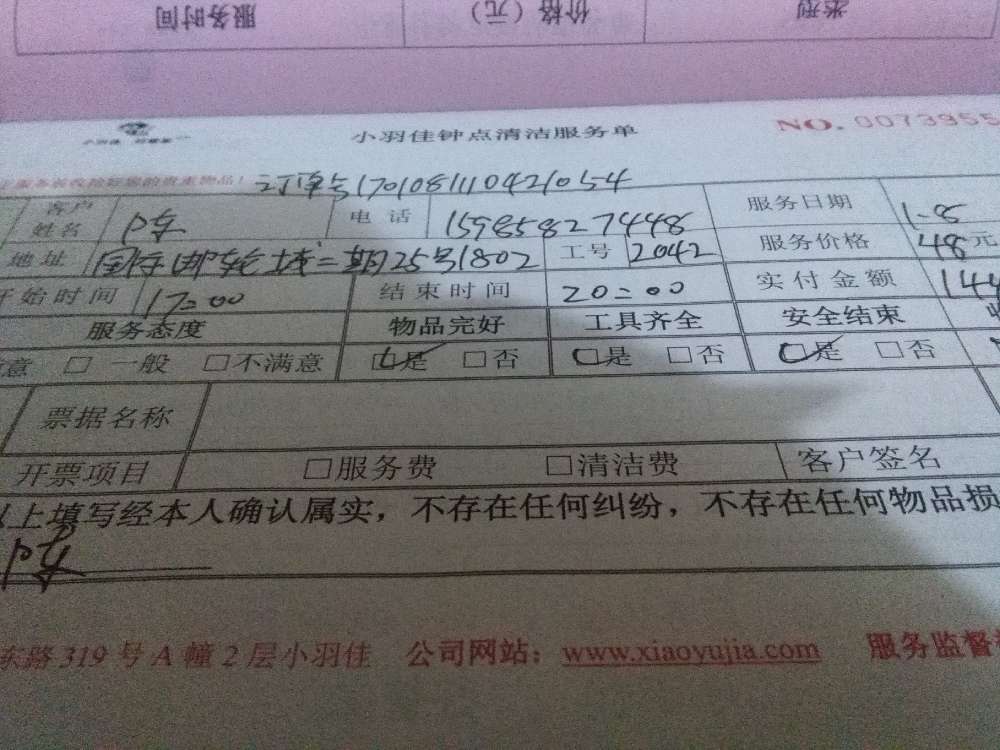 类型 价格（元） 服务时间
小羽佳钟点清洁服务单 NO. 0073955
订单号1701081110421054
客户姓名 电话 15985827448 服务日期 1-8
地址 国际邮轮城二期25号1802 工号 2042 服务价格 48元
开始时间 17:00 结束时间 20:00 实付金额 144
服务态度 物品完好 工具齐全 安全结束
意 □ 一般 □不满意 □是 □否 □是 □否 □是 □否
票据名称
开票项目 □服务费 □清洁费 客户签名
以上填写经本人确认属实，不存在任何纠纷，不存在任何物品损
东路 319 号 A 幢 2 层小羽佳 公司网站：www.xiaoyujia.com 服务监督